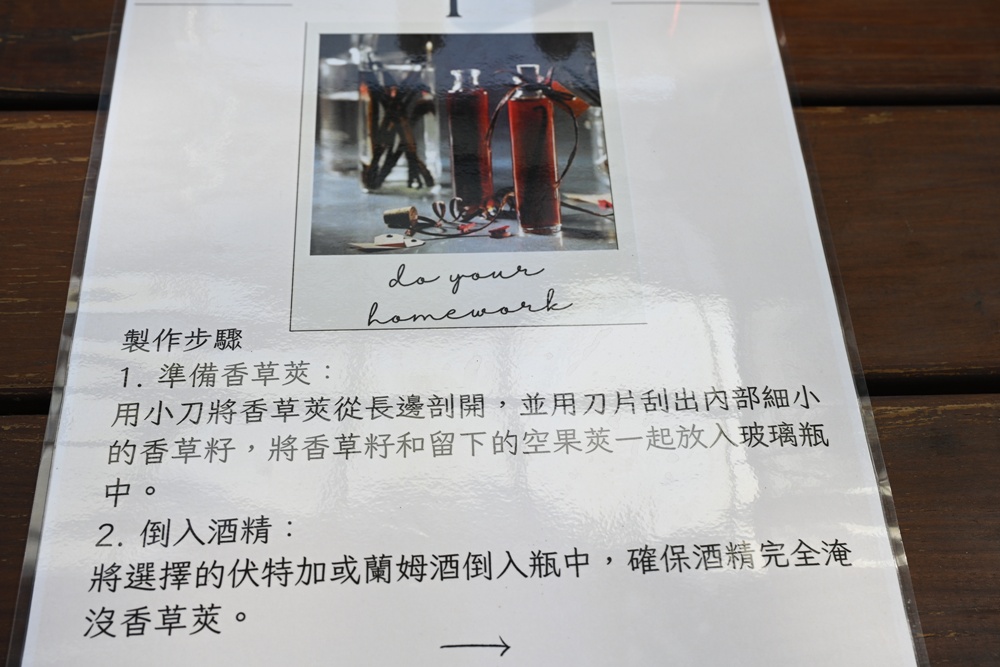 do your
homework
製作步驟
1. 準備香草莢：
用小刀將香草莢從長邊剖開，並用刀片刮出內部細小
的香草籽，將香草籽和留下的空果莢一起放入玻璃瓶
中。
2. 倒入酒精：
將選擇的伏特加或蘭姆酒倒入瓶中，確保酒精完全淹
沒香草莢。